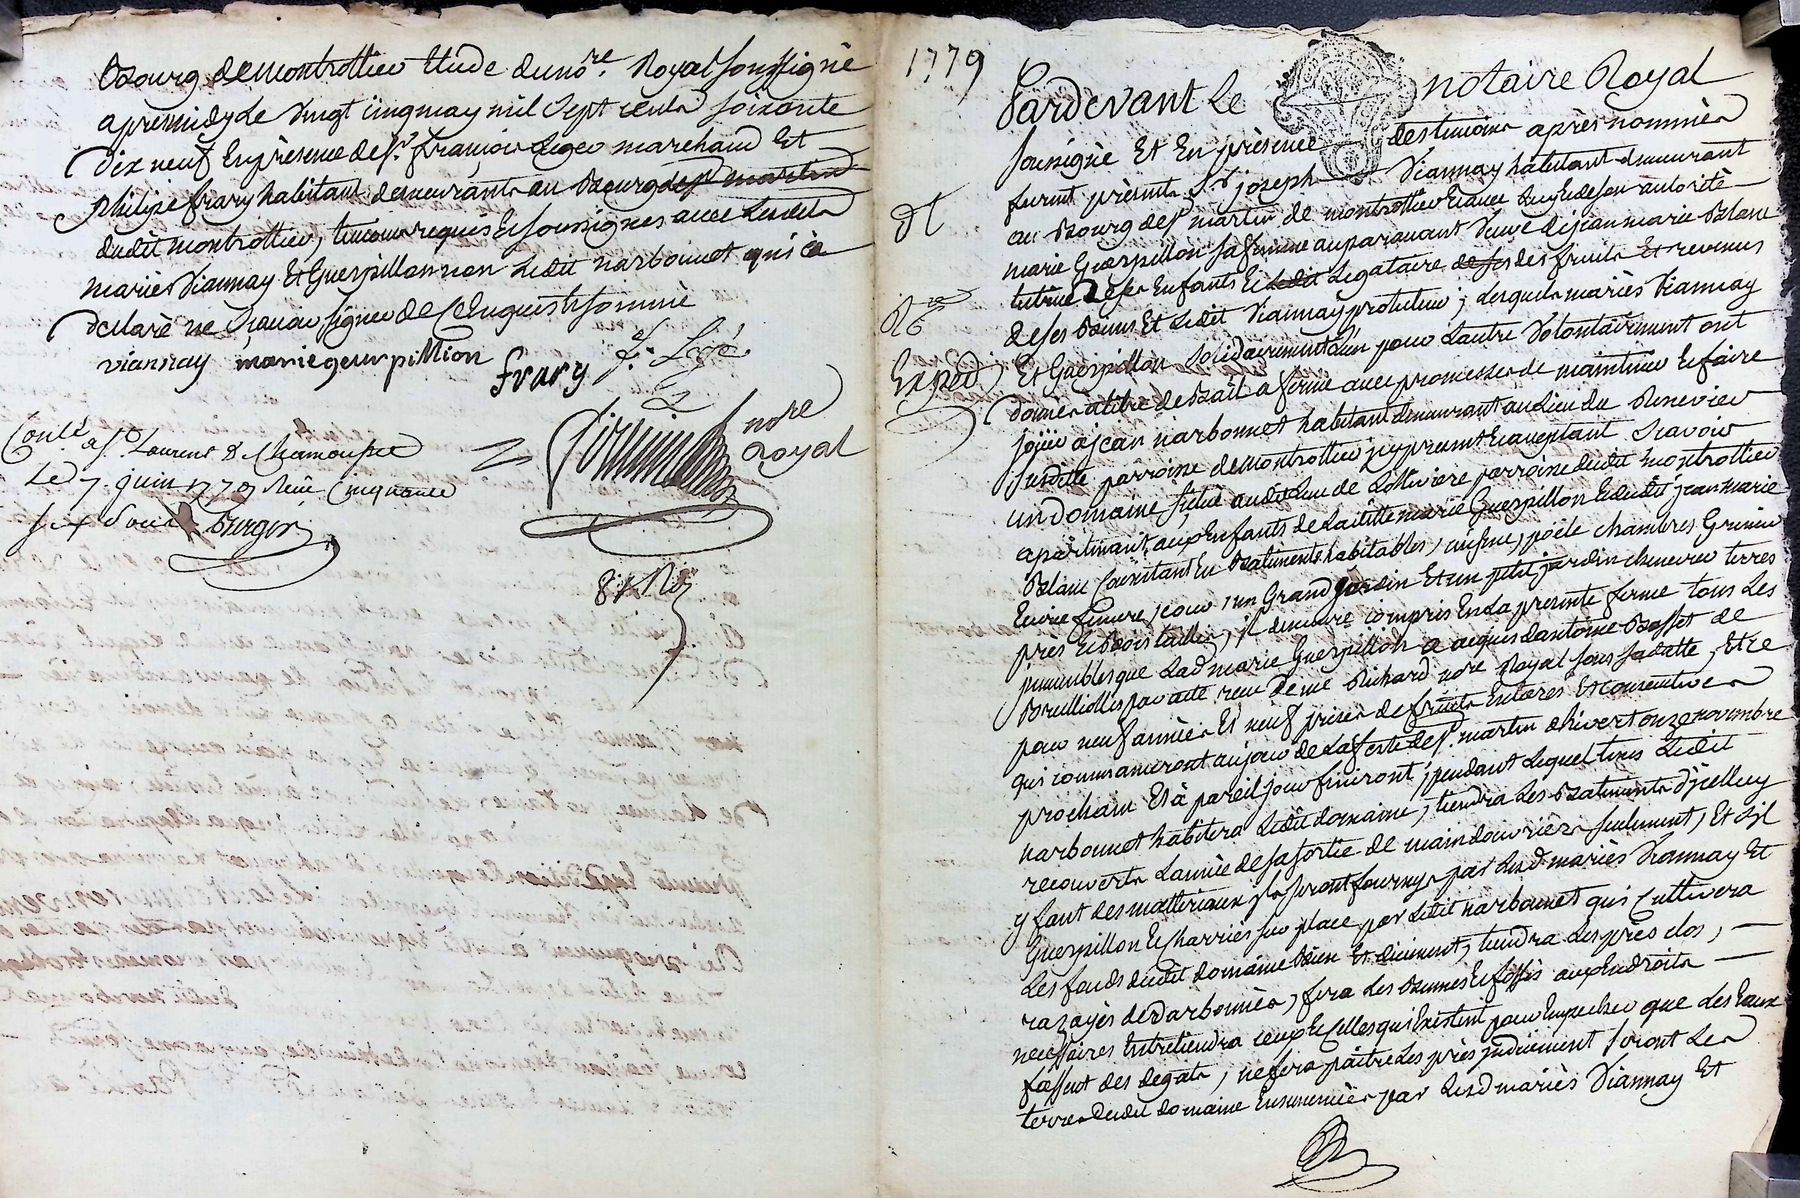 Bourg de montrottier Etude du no.re Royal soussigné
apremidy le vingt cinq may mil sept cents soixante
dix neuf En présence de sr. françois Leger marchand Et
philipe frary habitants demeurants au Bourg de st martin
dudit montrottier, temoins requis et soussignes avec lesdits
mariés Viannay Et Guerpillon non Ledit narbonnet qui a
déclaré ne sçavoir signer de ce Enquis Et sommé
viannay mariegeurpillion
frary f. Legé
no.re Royal
Con.lé a st. Laurent D. Chamousset
Le 7 juin 1779 Reçu Cinquante
six sous Burgor
1779
Pardevant Le notaire Royal
soussigné Et En présence des temoins après nommés
furent présents Sr. joseph Viannay habitant demeurant
au Bourg de st. martin de montrottier Et avec Luy Et de son autorité
marie Guerpillon sa femme auparavant Veuve de jean marie Blanc
tutrice de ses Enfants Et Legataire des fruits Et revenus
de ses Biens Et Ledit Viannay protuteur; Lesquels mariés Viannay
Et Guerpillon solidairement L'un pour Lautre Volontairement ont
Exped.
donné a titre de Bail a ferme avec promesse de maintenir Et faire
joüir a jean narbonnet habitant demeurant au Lieu du Renevier
susditte parroisse de montrottier jcy present Et acceptant Scavoir
un domaine situé audit Lieu de Lolliviere parroisse dudit montrottier
apartenant aux Enfants de Laditte marie Guerpillon Et dudit jean marie
Blanc Consistant En Batiments habitables, cuisine, poële chambres Grenier
Ecurie feniere, cour, un Grand jardin Et un petit jardin cheneviere terres
près Et Bois taillis, jl demeure compris En La presente ferme tous Les
jmmeubles que Lad. marie Guerpillon a acquis d'antoine Basset de
Brullioles par acte reçu De me Richard no.re Royal sous sa datte, Et ce
pour neuf années Et neuf prises de fruits Entieres Et consecutives
qui commanceront au jour de La feste de st. martin d'hivert onze novembre
prochain Et à pareil jour finiront, pendant Lequel tems Ledit
narbonnet habitera Ledit domaine, tiendra Les Batiments d'jcelluy
recouverts L'année de sa sortie de main douvriers seulement, Et s'jl
y faut des matteriaux jls seront fournys par Lesd. mariés Viannay Et
Guerpillon Et charriés sur place par Ledit narbonnet qui Cultivera
Les fonds dudit domaine Bien Et duement, tiendra Les près clos,
razayés de darbonnies, fera Les Bennes Et fossés aux Endroits
necessaires Entretiendra ceux Et celles qui Existent pour Empecher que Les Eaux
fassent des degats, ne fera paitre Les près judicièment seront Les
terres dudit domaine Ensemencées par Lesd mariés Viannay Et